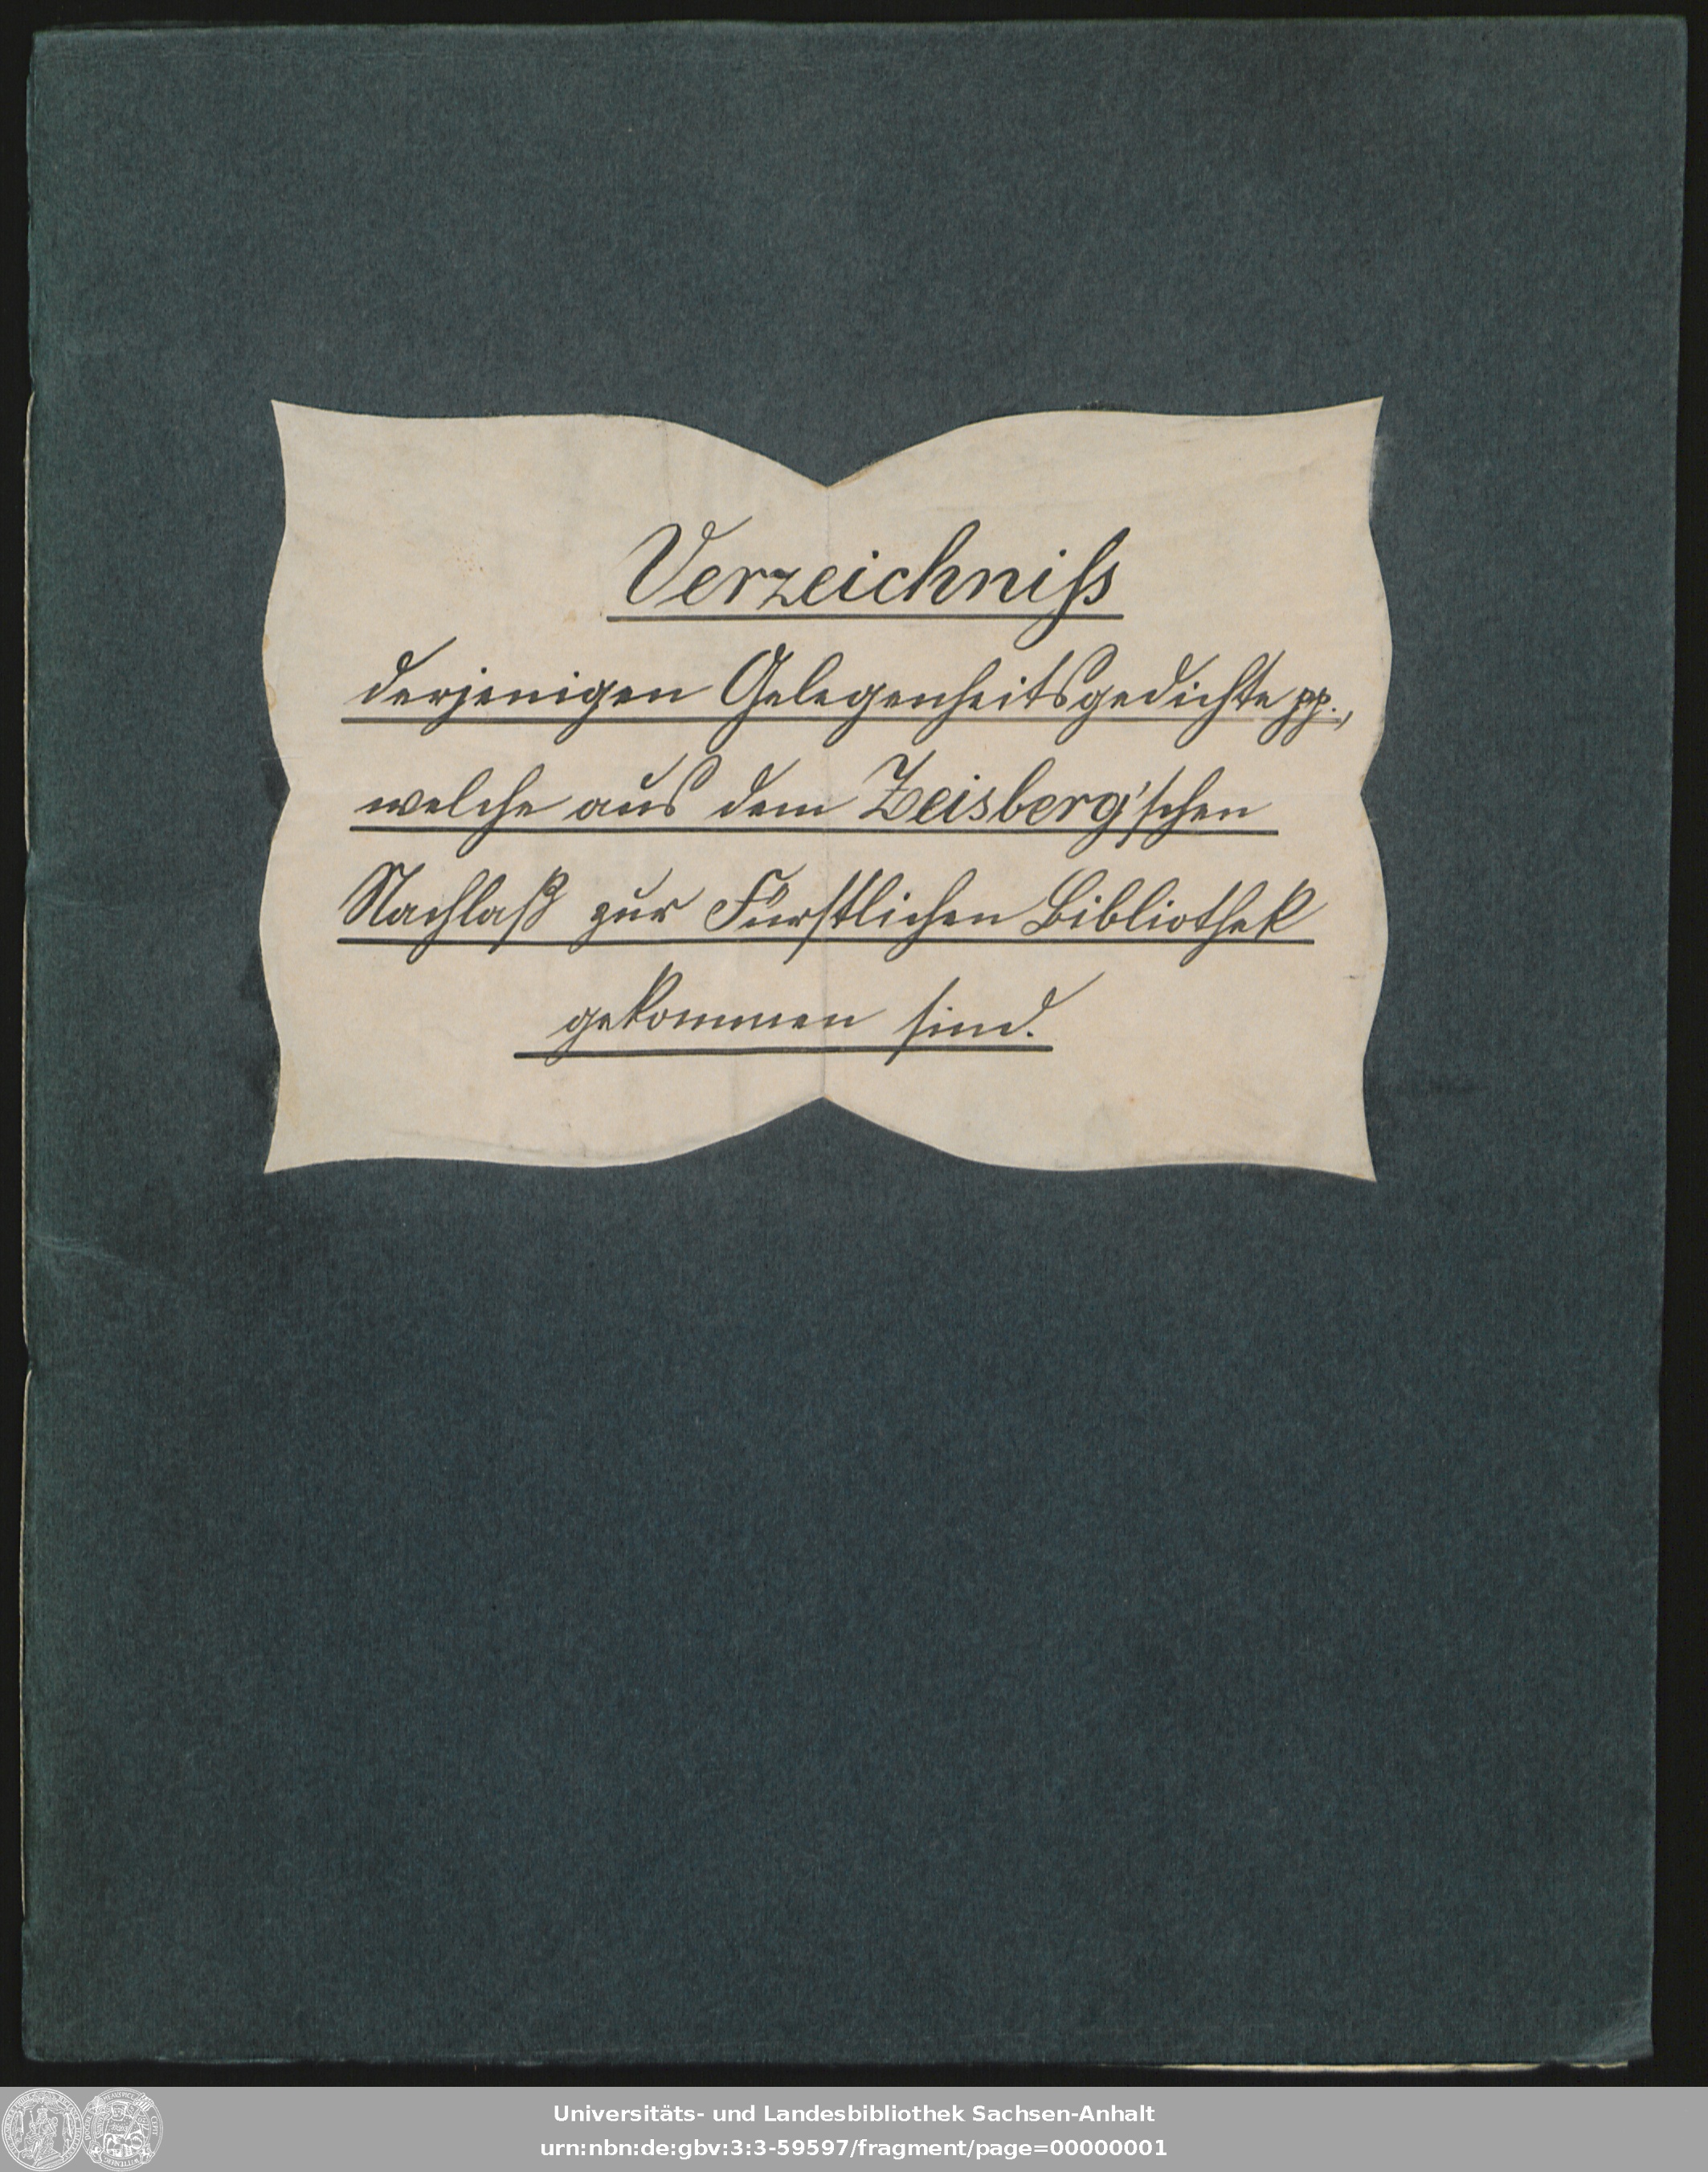 Verzeichniſs
derjenigen Gelegenheitsgedichte pp.,
welche aus dem Zeisberg'schen
Nachlaß zur Fürstlichen Bibliothek
gekommen sind.
Universitäts- und Landesbibliothek Sachsen-Anhalt
urn:nbn:de:gbv:3:3-59597/fragment/page=00000001